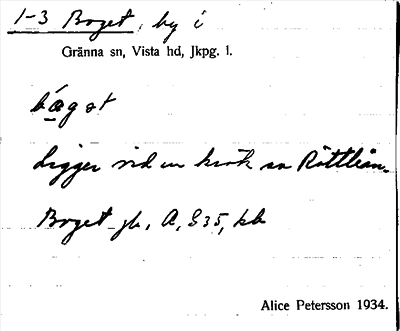 1-3 Boget, by i
Gränna sn, Vista hd, Jkpg. l.
bǻgət
Ligger vid en krök av Röttleån.
Boget jb, A, G35, kb
Alice Petersson 1934.